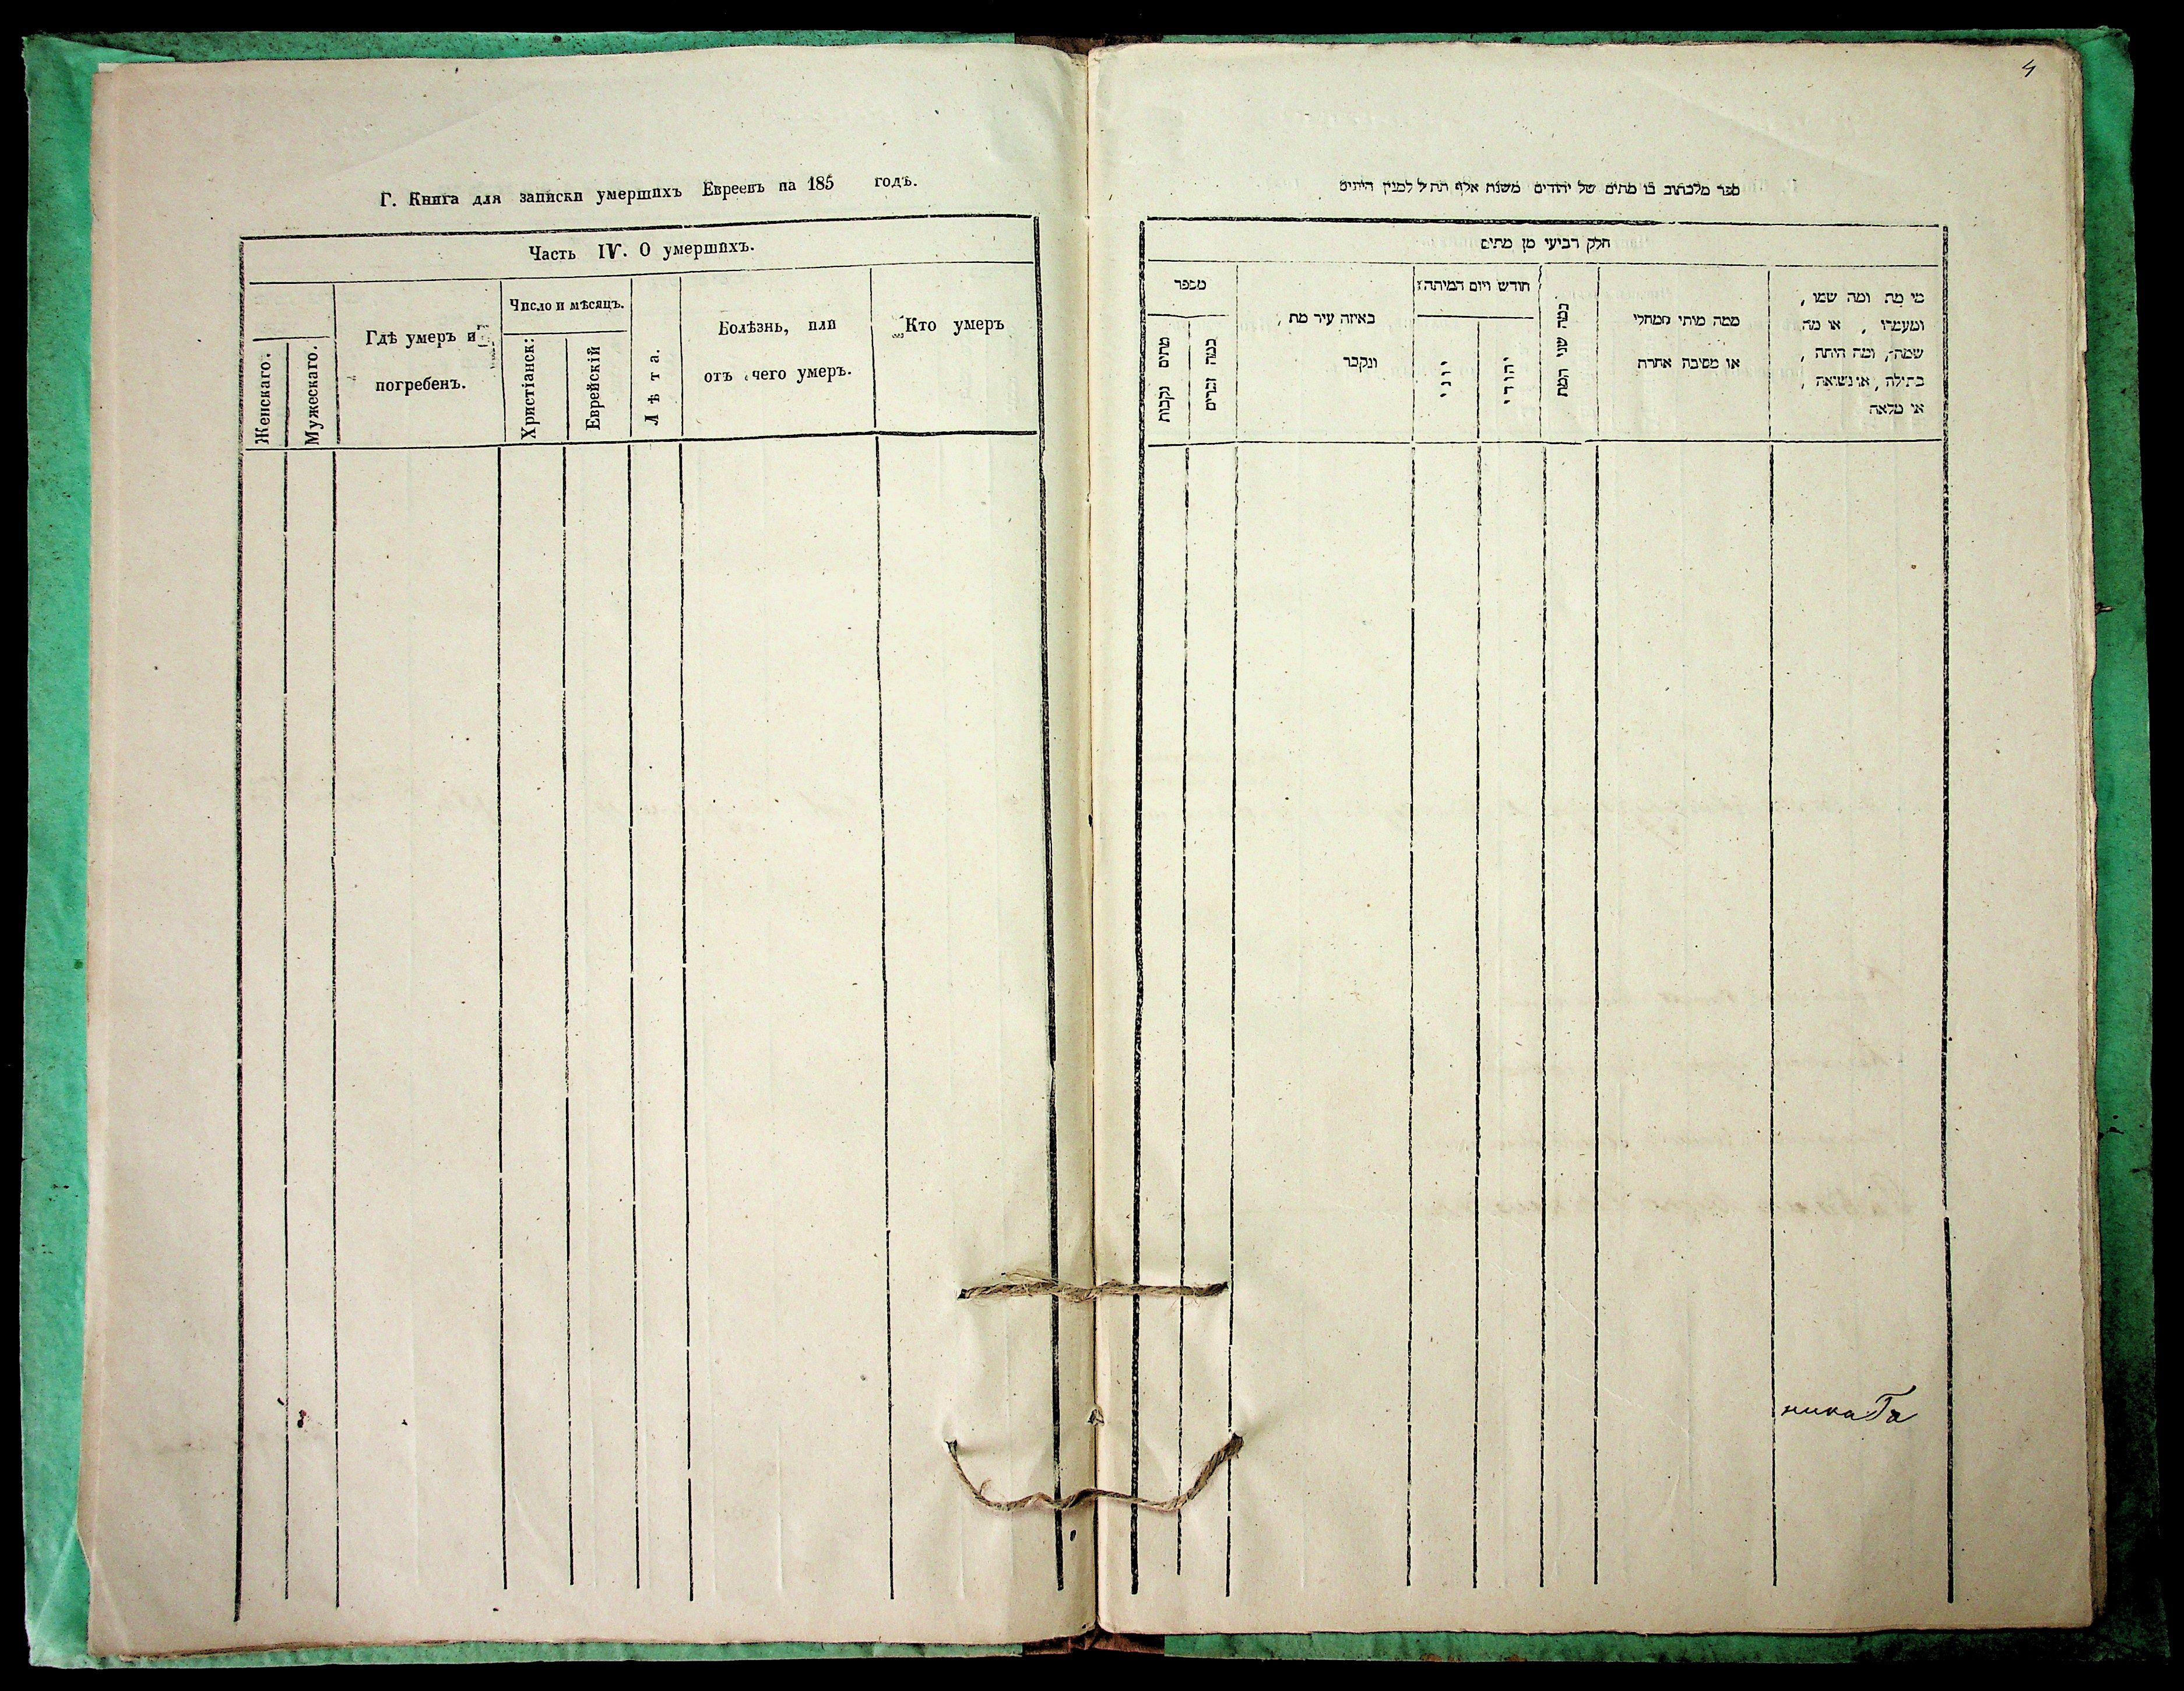 Г. Книга для записки умершихъ Евреевъ на 185 годъ.
Часть IV. О умершихъ.
Женскаго.
Мужескаго.
Гдѣ умеръ и
погребенъ.
Число и мѣсяцъ.
Христіанск:
Еврейскій
Лѣта.
Болѣзнь, или
отъ чего умеръ.
Кто умеръ
4
ספר מלכתוב בו מתים של יהודים משנת אלף תתיל למנין היתים
חלק רביעי מן מתים
מי מת ומה שמו,
ומעמדו, או מה
שמה, ומה היתה,
בתילה, או נשואה,
או מלאה
ממה מותי ממחלי
או מסיבה אחרת
כמה שני המת
חודש ויום המיתה:
יהודי
יוני
באיזה עיר מת,
ונקבר
מספר
כמה זכרים
מתים נקבות
ника Га